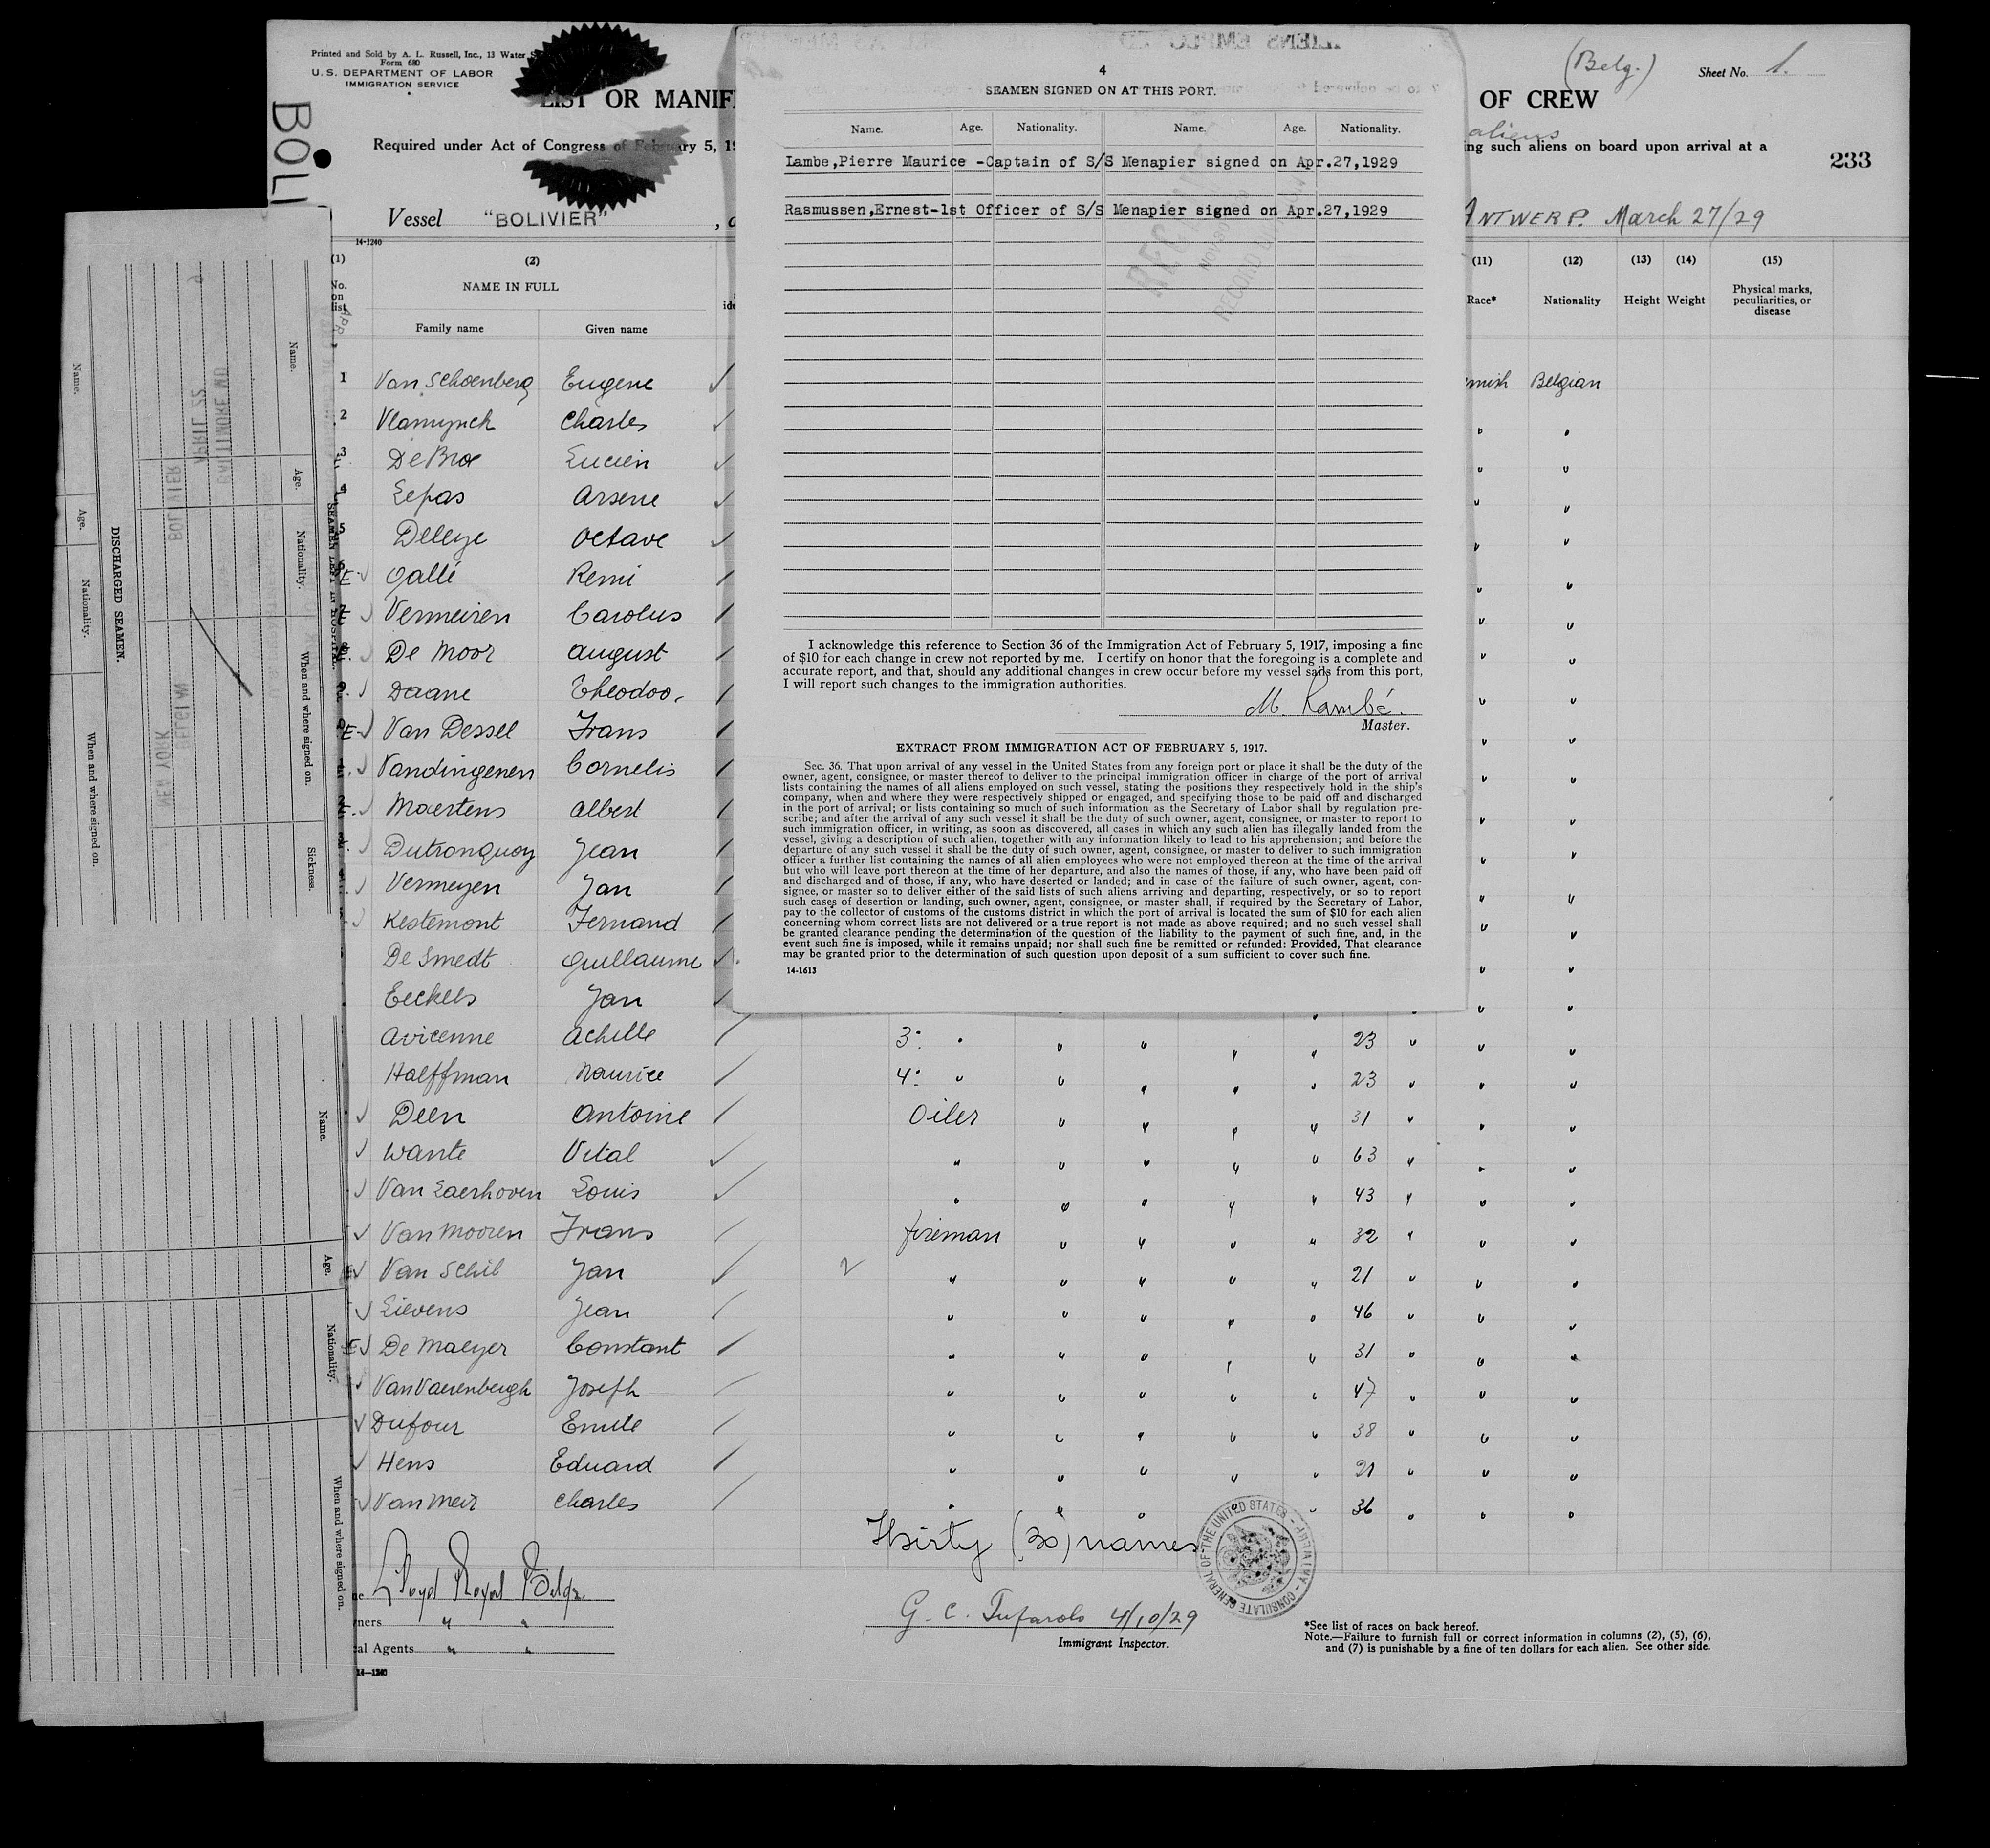 Printed and Sold by A. L. Russell, Inc., 13 Water
Form 680
U. S. DEPARTMENT OF LABOR
IMMIGRATION SERVICE
LIST OR MANIF
OF CREW
(Belg.)
Sheet No. 1.
aliens
Required under Act of Congress of February 5, 19
ing such aliens on board upon arrival at a
233
BOLI
Vessel "BOLIVIER"
ANTWERP. March 27/29
14-1240
(1) (2) (11) (12) (13) (14) (15)
No. on list
NAME IN FULL
Family name Given name
Race* Nationality Height Weight Physical marks, peculiarities, or disease
1 Van Schoenberg Eugene mish Belgian
2 Vlamynck Charles " "
3 De Broe Lucien " "
4 Lepas Arsene " "
5 Deleye Octave " "
Gallé Remi " "
Vermeiren Carolus " "
De Moor August " "
Daane Theodoo. " "
Van Dessel Frans " "
Vandingenen Cornelis " "
Maertens Albert " "
Dutronquoy Jean " "
Vermeyen Jan " "
Kestemont Fernand " "
De Smedt Guillaume " "
Eeckels Jan " "
Avicenne Achille 3: " " " " " 23 " " "
Halffman Maurice 4: " " " " " 23 " " "
Deen Antoine Oiler " " " " 31 " " "
Wante Vital " " " " " 63 " " "
Van Laerhoven Louis " " " " " 43 " " "
Van Mooren Frans fireman " " " " 32 " " "
Van Schil Jan " " " " " 21 " " "
Lievens Jean " " " " " 46 " " "
De Maeyer Constant " " " " " 31 " " "
Van Vaerenbergh Joseph " " " " " 47 " " "
Dufour Emile " " " " " 38 " " "
Hens Eduard " " " " " 21 " " "
Van Meir Charles " " " " " 36 " " "
Thirty (30) names
CONSULATE GENERAL OF THE UNITED STATES
Lloyd Royal Belge
ners " "
al Agents " "
14-1240
G. C. Tufarolo 4/10/29
Immigrant Inspector.
*See list of races on back hereof.
Note.—Failure to furnish full or correct information in columns (2), (5), (6),
and (7) is punishable by a fine of ten dollars for each alien. See other side.
4
SEAMEN SIGNED ON AT THIS PORT.
Name. Age. Nationality. Name. Age. Nationality.
Lambe,Pierre Maurice -Captain of S/S Menapier signed on Apr.27,1929
Rasmussen,Ernest-1st Officer of S/S Menapier signed on Apr.27,1929
I acknowledge this reference to Section 36 of the Immigration Act of February 5, 1917, imposing a fine
of $10 for each change in crew not reported by me. I certify on honor that the foregoing is a complete and
accurate report, and that, should any additional changes in crew occur before my vessel sails from this port,
I will report such changes to the immigration authorities.
M. Lambé.
Master.
EXTRACT FROM IMMIGRATION ACT OF FEBRUARY 5, 1917.
Sec. 36. That upon arrival of any vessel in the United States from any foreign port or place it shall be the duty of the
owner, agent, consignee, or master thereof to deliver to the principal immigration officer in charge of the port of arrival
lists containing the names of all aliens employed on such vessel, stating the positions they respectively hold in the ship's
company, when and where they were respectively shipped or engaged, and specifying those to be paid off and discharged
in the port of arrival; or lists containing so much of such information as the Secretary of Labor shall by regulation pre-
scribe; and after the arrival of any such vessel it shall be the duty of such owner, agent, consignee, or master to report to
such immigration officer, in writing, as soon as discovered, all cases in which any such alien has illegally landed from the
vessel, giving a description of such alien, together with any information likely to lead to his apprehension; and before the
departure of any such vessel it shall be the duty of such owner, agent, consignee, or master to deliver to such immigration
officer a further list containing the names of all alien employees who were not employed thereon at the time of the arrival
but who will leave port thereon at the time of her departure, and also the names of those, if any, who have been paid off
and discharged and of those, if any, who have deserted or landed; and in case of the failure of such owner, agent, con-
signee, or master so to deliver either of the said lists of such aliens arriving and departing, respectively, or so to report
such cases of desertion or landing, such owner, agent, consignee, or master shall, if required by the Secretary of Labor,
pay to the collector of customs of the customs district in which the port of arrival is located the sum of $10 for each alien
concerning whom correct lists are not delivered or a true report is not made as above required; and no such vessel shall
be granted clearance pending the determination of the question of the liability to the payment of such fine, and, in the
event such fine is imposed, while it remains unpaid; nor shall such fine be remitted or refunded: Provided, That clearance
may be granted prior to the determination of such question upon deposit of a sum sufficient to cover such fine.
14-1613
DISCHARGED SEAMEN.
Name. Age. Nationality. When and where signed on.
SEAMEN LEFT IN HOSPITAL.
Name. Age. Nationality. When and where signed on. Sickness.
Name. Age. Nationality. When and where signed on.
BALTIMORE MD
APRIL 22
BOLIVIER
BELGIUM
NEW YORK